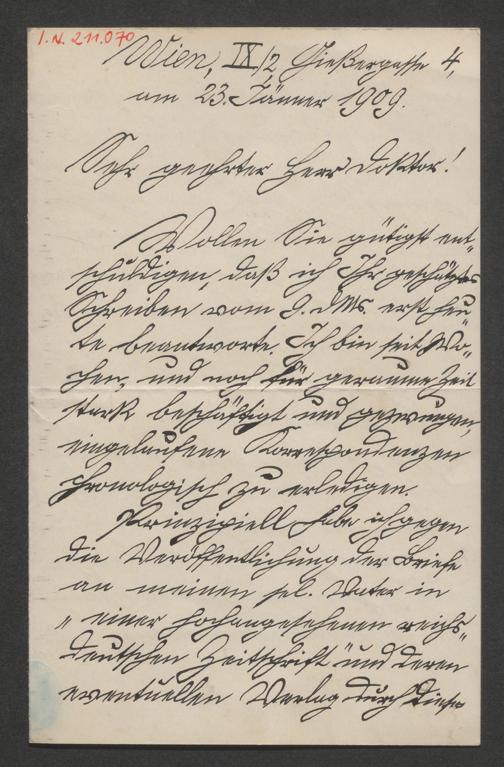 I.N. 211.070
Wien, IX/2, Gießergasse 4,
am 23. Jänner 1909.
Sehr geehrter Herr Doktor!
Wollen Sie gütigst ent-
schuldigen, daß ich Ihr geschätztes
Schreiben vom 9. d. Ms. erst heu-
te beantworte. Ich bin seit Wo-
chen, und noch für geraume Zeit
stark beschäftigt und gezwungen,
eingelaufene Korrespondenzen
chronologisch zu erledigen.
Prinzipiell habe ich gegen
die Veröffentlichung der Briefe
an meinen sel. Vater in
„einer hochangesehenen reichs-
deutschen Zeitschrift" und deren
eventuellen Verlag durch diese